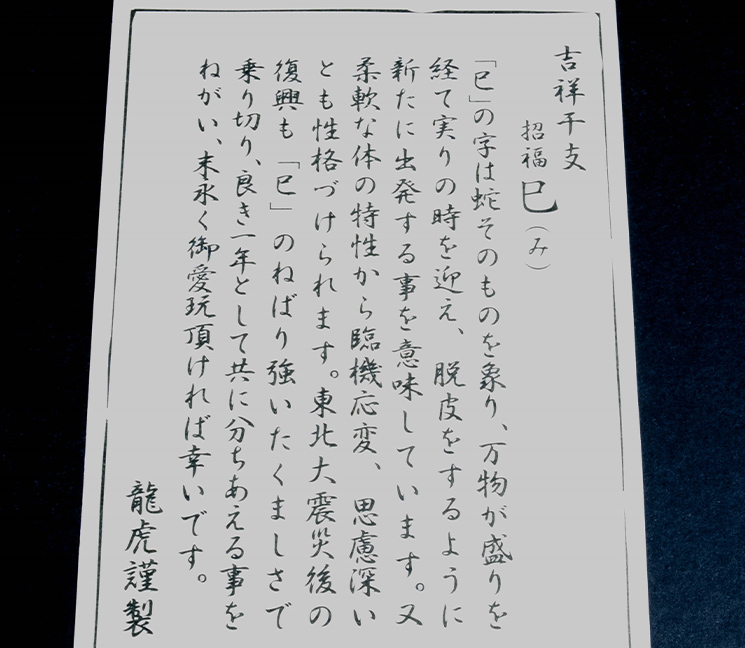 吉祥干支
招福 巳（み）
「巳」の字は蛇そのものを象り、万物が盛りを
経て実りの時を迎え、脱皮をするように
新たに出発する事を意味しています。又
柔軟な体の特性から臨機応変、思慮深い
とも性格づけられます。東北大震災後の
復興も「巳」のねばり強いたくましさで
乗り切り、良き一年として共に分ちあえる事を
ねがい、末永く御愛玩頂ければ幸いです。
龍虎謹製